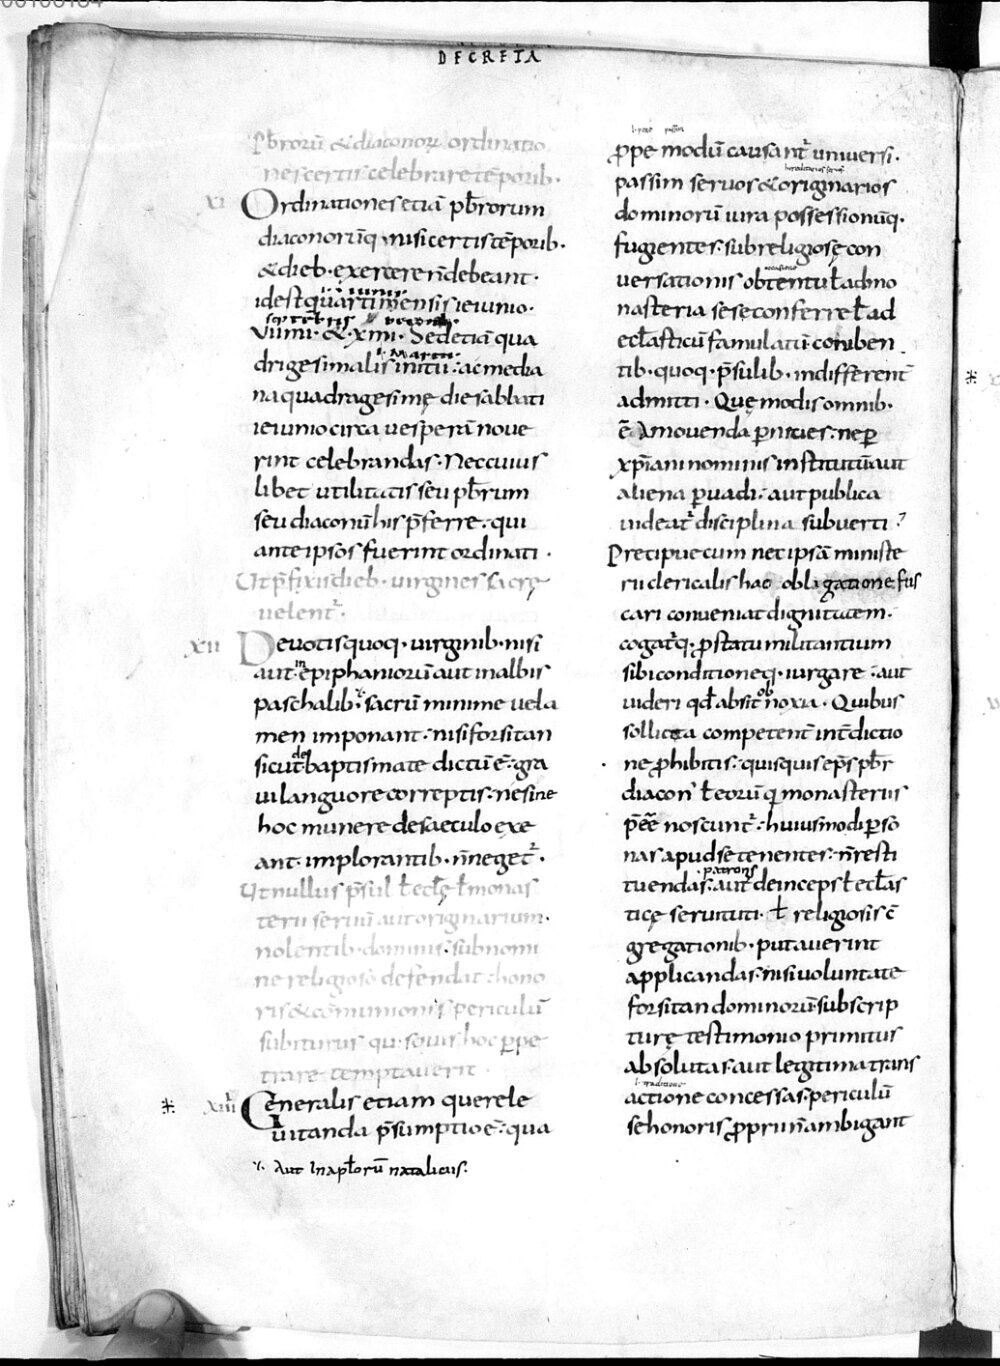 DECRETA
Pb̄rorū & diaconoꝝ ordinatio
nes certis celebrare tēporib·
XI Ordinationes etiā pb̄rorum
diaconorūq· nisi certis tēporib·
& dieb· exercere n̄ debeant·
l· iunii·
id est quarti mensis ieiunio·
septēbris decemb·
Vıımı· & xmı· Sed etiā qua
l· Martii·
drigesimalis initii: ac media
na quadragesimę die sabbati
ieiunio circa uesperā noue
rint celebrandas· Nec cuius
libet utilitatis seu pb̄rum
seu diaconū his p̄ferre: qui
ante ipsos fuerint ordinati·
Ut p̄fixis dieb· uirgines sacrę
uelent᷑·
XII Deuotis quoq· uirginib· nisi
aut in epiphaniorū aut in albis
paschalib· sacrū minime uela
men imponant: nisi forsitan
sicut de baptismate dictū ē: gra
ui languore correptis: ne sine
hoc munere de saeculo exe
ant: implorantib· n̄ neget᷑·
Ut nullus p̄sul ł ecl̄ę ł monas
terii seruū aut originarium·
nolentib· dominis: sub nomi
ne religioso defendat: hono
ris & cōmunionis periculū
subiturus qui scius hoc ꝑpe
trare temptauerit·
※ XIII Generalis etiam querele
uitanda p̄sumptio ē: qua
·/· Aut In apl̄orū nataliciis·
ꝓpe modū causant᷑ uniuersi·
passim seruos & originarios
dominorū iura possessionūq·
fugientes: sub religiosę con
occasione
uersationis obtentu ł ad mo
nasteria sese conferre ł ad
ecl̄asticū famulatū coniben
tib· quoq· p̄sulib· indifferent᷑
admitti· Quę modis omnib·
ē Amouenda ꝑnicies: ne ꝑ
xp̄iani nominis institutū aut
aliena ꝑuadi: aut publica
uideat᷑ disciplina subuerti?
Precipue cum nec ipsā ministe
rii clericalis hac obligatione fus
cari conueniat dignitatem·
cogat᷑q· ꝓ statu militantium
sibi conditioneq· iurgare: aut
uideri qd̄ absit obnoxia· Quibus
sollicita competent᷑ int̄dictio
ne ꝓhibitis: quisquis ep̄s pb̄r
diacon᷒ ł eorū q monasteriis
p̄eē noscunt᷑: huiusmodi ꝑso
nas apud se tenentes: n̄ resti
patronis
tuendas: aut deinceps ł ecl̄as
ticę seruituti· ł religiosis c̄
gregationib· putauerint
applicandas: nisi uoluntate
forsitan dominorū sub scrip
turę testimonio primitus
absolutas: aut legitima trans
l· traditione
actione concessas: periculū
se honoris ꝓprii n̄ ambigant
※